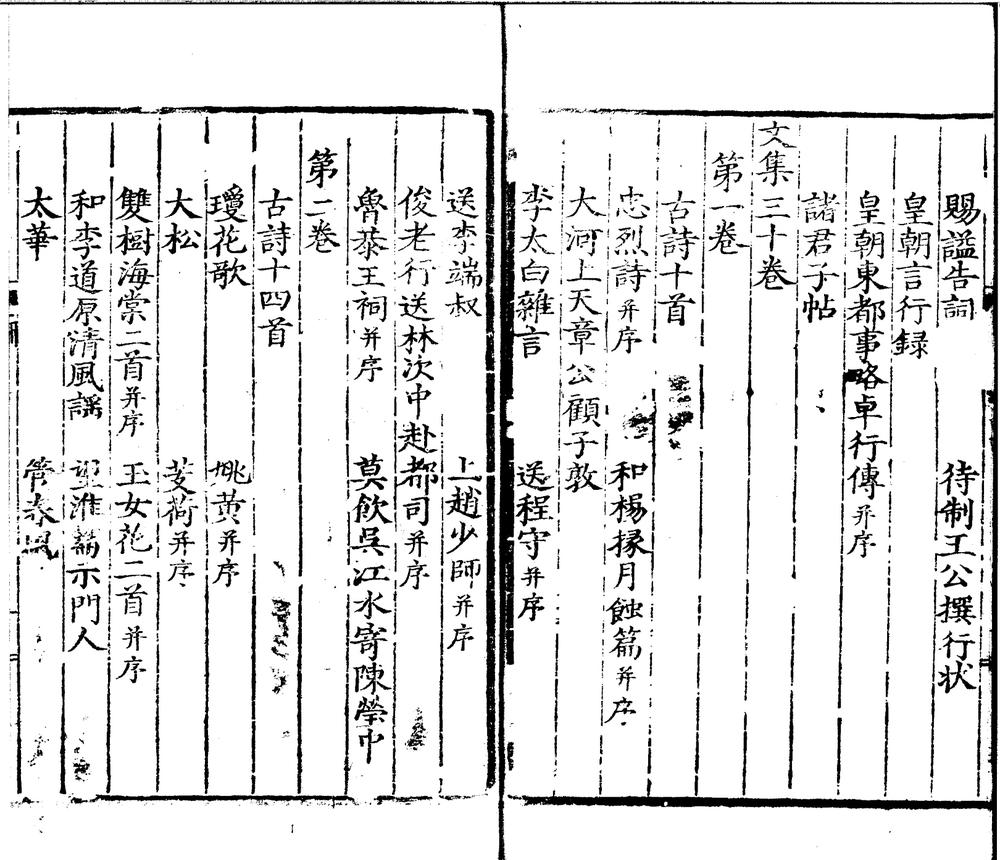 賜謚告詞 待制王公撰行状
皇朝言行録
皇朝東都事略卓行傳并序
諸君子帖
文集三十卷
第一卷
古詩十首
忠烈詩并序 和楊掾月蝕篇并序
大河上天章公顧子敦
李太白雜言 送程守并序
送李端叔 上趙少師并序
俊老行送林次中赴都司并序
魯恭王祠并序 莫飲吳江水寄陳瑩中
第二卷
古詩十四首
瓊花歌 姚黄并序
大松 芰荷并序
雙樹海棠二首并序 玉女花二首并序
和李道原清風謡 望淮篇示門人
太華